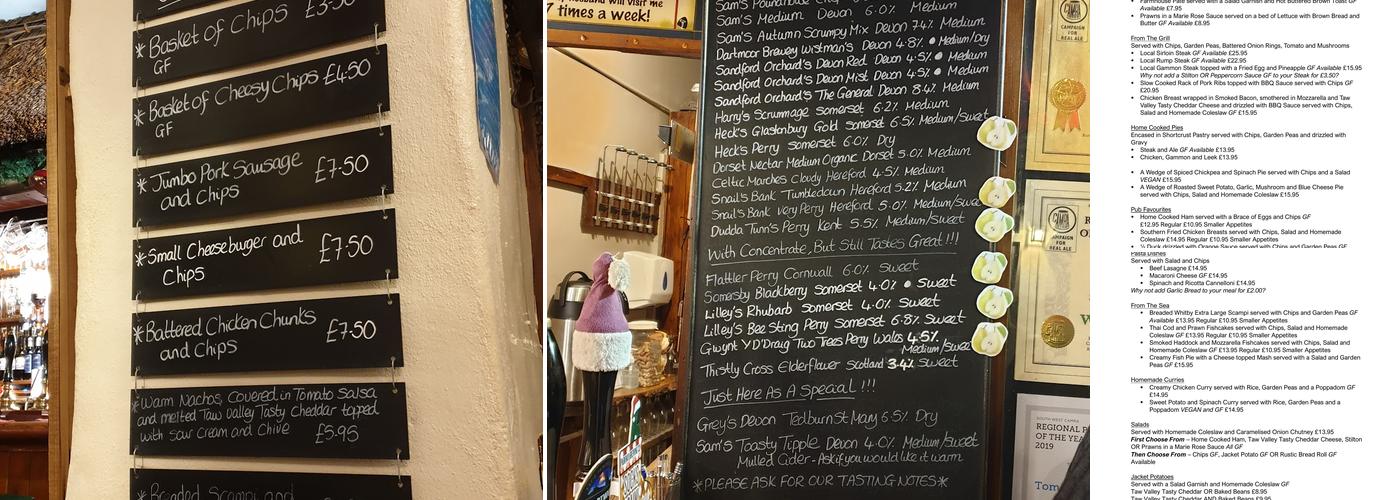 * Basket of Chips £3.50
GF
* Basket of Cheesy Chips £4.50
GF
* Jumbo Pork Sausage
and Chips £7.50
* Small Cheeseburger and
Chips £7.50
* Battered Chicken Chunks
and Chips £7.50
* Warm Nachos, Covered in Tomato Salsa
and melted Taw Valley Tasty Cheddar topped
with sour cream and Chive £5.95
* Breaded Scampi and
husband will visit
7 times a week!
Sam's Poundhouse
Sam's Medium Devon 6.0% Medium
Sam's Autumn Scrumpy Mix Devon 7.4% Medium
Dartmoor Brewery Wistman's Devon 4.8% • Medium/Dry
Sandford Orchard's Devon Red Devon 4.5% • Medium
Sandford Orchard's Devon Mist Devon 4.5% • Medium
Sandford Orchard's The General Devon 8.4% Medium
Harry's Scrummage Somerset 6.2% Medium
Heck's Glastonbury Gold Somerset 6.5% Medium/Sweet
Heck's Perry Somerset 6.0% Dry
Dorset Nectar Medium Organic Dorset 5.0% Medium
Celtic Marches Cloudy Hereford 4.5% Medium
Snail's Bank Tumbledown Hereford 5.2% Medium
Snail's Bank Very Perry Hereford 5.0% Medium/Swe
Dudda Tunn's Perry Kent 5.5% Medium/Sweet
With Concentrate, But Still Tastes Great!!!
Flattler Perry Cornwall 6.0% Sweet
Somersby Blackberry Somerset 4.0% • Sweet
Lilley's Rhubarb Somerset 4.0% Sweet
Lilley's Bee Sting Perry Somerset 6.8% Sweet
Gwynt Y D'Draig Two Trees Perry Wales 4.5%
Medium/Swee
Thistly Cross Elderflower Scotland 3.4% Sweet
Just Here As A Special!!!
Grey's Devon Tedburn St Mary 6.5% Dry
Sam's Toasty Tipple Devon 4.0% Medium/Sweet
Mulled Cider - Ask if you would like it warm
*PLEASE ASK FOR OUR TASTING NOTES*
CAMPAIGN
FOR
REAL ALE
CAMPAIGN
FOR
REAL ALE
SOUTH WEST CAMRA
REGIONAL P
OF THE YEA
2019
Tom
• Farmhouse Pate served with a Salad Garnish and Hot Buttered Brown Toast GF
Available £7.95
• Prawns in a Marie Rose Sauce served on a bed of Lettuce with Brown Bread and
Butter GF Available £8.95
From The Grill
Served with Chips, Garden Peas, Battered Onion Rings, Tomato and Mushrooms
• Local Sirloin Steak GF Available £25.95
• Local Rump Steak GF Available £22.95
• Local Gammon Steak topped with a Fried Egg and Pineapple GF Available £15.95
Why not add a Stilton OR Peppercorn Sauce GF to your Steak for £3.50?
• Slow Cooked Rack of Pork Ribs topped with BBQ Sauce served with Chips GF
£20.95
• Chicken Breast wrapped in Smoked Bacon, smothered in Mozzarella and Taw
Valley Tasty Cheddar Cheese and drizzled with BBQ Sauce served with Chips,
Salad and Homemade Coleslaw GF £15.95
Home Cooked Pies
Encased in Shortcrust Pastry served with Chips, Garden Peas and drizzled with
Gravy
• Steak and Ale GF Available £13.95
• Chicken, Gammon and Leek £13.95
• A Wedge of Spiced Chickpea and Spinach Pie served with Chips and a Salad
VEGAN £15.95
• A Wedge of Roasted Sweet Potato, Garlic, Mushroom and Blue Cheese Pie
served with Chips, Salad and Homemade Coleslaw £15.95
Pub Favourites
• Home Cooked Ham served with a Brace of Eggs and Chips GF
£12.95 Regular £10.95 Smaller Appetites
• Southern Fried Chicken Breasts served with Chips, Salad and Homemade
Coleslaw £14.95 Regular £10.95 Smaller Appetites
• ½ Duck drizzled with Orange Sauce served with Chips and Garden Peas GF
Pasta Dishes
Served with Salad and Chips
• Beef Lasagne £14.95
• Macaroni Cheese GF £14.95
• Spinach and Ricotta Cannelloni £14.95
Why not add Garlic Bread to your meal for £2.00?
From The Sea
• Breaded Whitby Extra Large Scampi served with Chips and Garden Peas GF
Available £13.95 Regular £10.95 Smaller Appetites
• Thai Cod and Prawn Fishcakes served with Chips, Salad and Homemade
Coleslaw GF £13.95 Regular £10.95 Smaller Appetites
• Smoked Haddock and Mozzarella Fishcakes served with Chips, Salad and
Homemade Coleslaw GF £13.95 Regular £10.95 Smaller Appetites
• Creamy Fish Pie with a Cheese topped Mash served with a Salad and Garden
Peas GF £15.95
Homemade Curries
• Creamy Chicken Curry served with Rice, Garden Peas and a Poppadom GF
£14.95
• Sweet Potato and Spinach Curry served with Rice, Garden Peas and a
Poppadom VEGAN and GF £14.95
Salads
Served with Homemade Coleslaw and Caramelised Onion Chutney £13.95
First Choose From – Home Cooked Ham, Taw Valley Tasty Cheddar Cheese, Stilton
OR Prawns in a Marie Rose Sauce All GF
Then Choose From – Chips GF, Jacket Potato GF OR Rustic Bread Roll GF
Available
Jacket Potatoes
Served with a Salad Garnish and Homemade Coleslaw GF
Taw Valley Tasty Cheddar OR Baked Beans £8.95
Taw Valley Tasty Cheddar AND Baked Beans £9.95